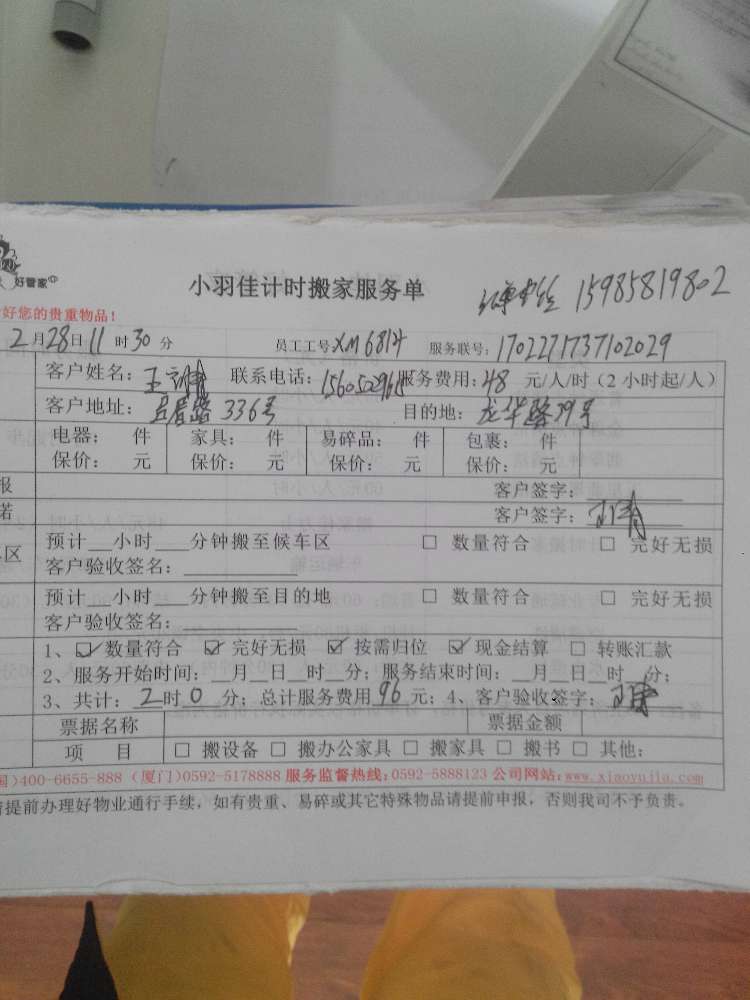 好管家
小羽佳计时搬家服务单 15985819802
好您的贵重物品！
2月28日11时30分 员工工号XM6814 服务联号：1702271737102029
客户姓名：王 联系电话：1560502968 服务费用：48 元/人/时（2小时起/人）
客户地址：336号 目的地：龙华路79号
电器： 件 家具： 件 易碎品： 件 包裹： 件
保价： 元 保价： 元 保价： 元 保价： 元
报 客户签字：
诺 客户签字：
区 预计__小时___分钟搬至候车区 □ 数量符合 □ 完好无损
客户验收签名：
预计__小时___分钟搬至目的地 □ 数量符合 □ 完好无损
客户验收签名：
1、☑数量符合 ☑完好无损 ☑按需归位 ☑现金结算 □转账汇款
2、服务开始时间：__月__日__时__分；服务结束时间：__月__日__时__分；
3、共计：2时0分；总计服务费用96元；4、客户验收签字：
票据名称 票据金额
项 目 □搬设备 □搬办公家具 □搬家具 □搬书 □其他：
国）400-6655-888（厦门）0592-5178888 服务监督热线：0592-5888123 公司网站：www.xiaoyujia.com
请提前办理好物业通行手续，如有贵重、易碎或其它特殊物品请提前申报，否则我司不予负责。